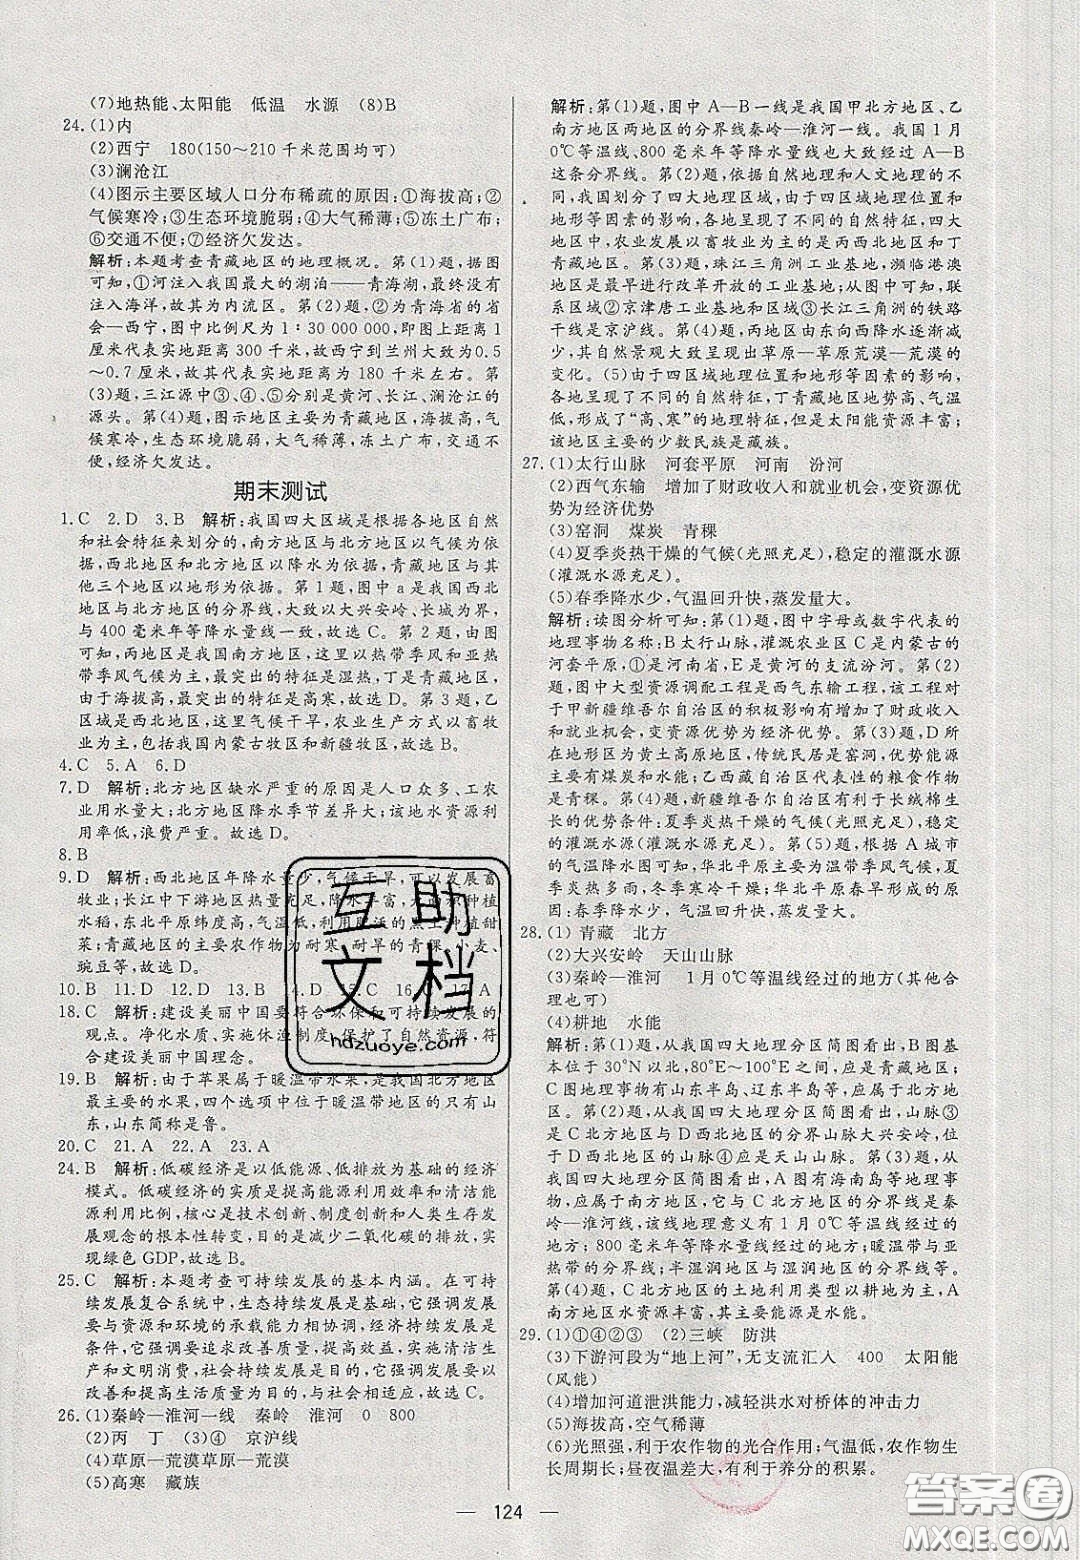 (7)地热能、太阳能 低温 水源 (8)B
24.(1)内
(2)西宁 180(150～210千米范围均可)
(3)澜沧江
(4)图示主要区域人口分布稀疏的原因:①海拔高;②
气候寒冷;③生态环境脆弱;④大气稀薄;⑤冻土广布;
⑥交通不便;⑦经济欠发达。
解析:本题考查青藏地区的地理概况。第(1)题,据图
可知,①河注入我国最大的湖泊——青海湖,最终没有
注入海洋,故其为内流区。第(2)题,②为青海省的省
会—西宁,图中比例尺为1∶30 000 000,即图上1
厘米代表实地距离300千米,故西宁到兰州大致为0.5
～0.7厘米,故其代表实地距离为180千米左右。第
(3)题,三江源中③、④、⑤分别是黄河、长江、澜沧江的
源头。第(4)题,图示地区主要为青藏地区,海拔高,气
候寒冷,生态环境脆弱,大气稀薄,冻土广布,交通不
便,经济欠发达。
期末测试
1.C 2.D 3.B 解析:我国四大区域是根据各地区自然
和社会特征来划分的,南方地区与北方地区以气候为依
据,西北地区和北方地区以降水为依据,青藏地区与其
他三个地区以地形为依据。第1题,图中a是我国西北
地区与北方地区的分界线,大致以大兴安岭、长城为界,
与400毫米年等降水量线一致,故选C。第2题,由图
可知,丙地区是我国南方地区,这里以热带季风和亚热
带季风气候为主,最突出的特征是湿热,丁是青藏地区,
由于海拔高,最突出的特征是高寒,故选D。第3题,乙
区域是西北地区,这里气候干旱,农业生产方式以畜牧
业为主,包括我国内蒙古牧区和新疆牧区,故选B。
4.C 5.A 6.D
7.D 解析:北方地区缺水严重的原因是人口众多、工农
业用水量大;北方地区降水季节差异大;该地水资源利
用率低,浪费严重。故选D。
8.B
9.D 解析:西北地区年降水量少,气候干旱,可以发展畜
牧业;长江中下游地区热量充足,降水丰富,大面积种植
水稻,东北平原纬度高,气温低,利用肥沃的黑土种植甜
菜;青藏地区的主要农作物为耐寒、耐旱的青稞、小麦、
豌豆等,故选D。
10.B 11.D 12.D 13.B 14.B 15.C 16. 17.A
18.C 解析:建设美丽中国要符合环保和可持续发展的
观点。净化水质、实施休渔制度,保护了自然资源,符
合建设美丽中国理念。
19.B 解析:由于苹果属于暖温带水果,是我国北方地区
最主要的水果,四个选项中位于暖温带地区的只有山
东,山东简称是鲁。
20.C 21.A 22.A 23.A
24.B 解析:低碳经济是以低能源、低排放为基础的经济
模式。低碳经济的实质是提高能源利用效率和清洁能
源利用比例,核心是技术创新、制度创新和人类生存发
展观念的根本性转变,目的是减少二氧化碳的排放,以
实现绿色GDP,故选B。
25.C 解析:本题考查可持续发展的基本内涵。在可持
续发展复合系统中,生态持续发展是基础,它强调发展
要与资源和环境的承载能力相协调,经济持续发展是
条件,它强调要追求改善质量、提高效益,实施清洁生
产和文明消费,社会持续发展是目的,它强调发展要以
改善和提高生活质量为目的,故选C。
26.(1)秦岭—淮河一线 秦岭 淮河 0 800
(2)丙 丁 (3)④ 京沪线
(4)草原—荒漠草原—荒漠
(5)高寒 藏族
解析:第(1)题,图中A—B一线是我国甲北方地区、乙
南方地区两地区的分界线秦岭—淮河一线。我国1月
0℃等温线、800毫米年等降水量线也大致经过A—B
这条分界线。第(2)题,依据自然地理和人文地理的不
同,我国划分了四大地理区域,由于四区域地理位置和
地形等因素的影响,各地呈现了不同的自然特征,四大
地区中,农业发展以畜牧业为主的是丙西北地区和丁
青藏地区。第(3)题,珠江三角洲工业基地,濒临港澳
地区,是最早进行改革开放的工业基地。从图中可以看
出,连接区域②京津唐工业基地和区域③长江三角洲的铁路
干线是京沪线。第(4)题,丙地区由东向西降水逐渐减
少,其自然景观大致呈现出草原—草原荒漠—荒漠的
变化。(5)由于四区域地理位置和地形等因素的影响,
各地呈现了不同的自然特征,丁青藏地区地势高、气温
低,形成了“高、寒”的地理特征,但是太阳能资源丰富;
该地区主要的少数民族是藏族。
27.(1)太行山脉 河套平原 河南 汾河
(2)西气东输 增加了财政收入和就业机会,变资源优
势为经济优势
(3)窑洞 煤炭 青稞
(4)夏季炎热干燥的气候(光照充足),稳定的灌溉水源
(灌溉水源充足)。
(5)春季降水少,气温回升快,蒸发量大。
解析:读图分析可知:第(1)题,图中字母或数字代表的
地理事物名称:B太行山脉,灌溉农业区C是内蒙古的
河套平原,①是河南省,E是黄河的支流汾河。第(2)
题,图中大型资源调配工程是西气东输工程,该工程对
于甲新疆维吾尔自治区的积极影响有增加了财政收入
和就业机会,变资源优势为经济优势。第(3)题,D所
在地形区为黄土高原地区,传统民居是窑洞,优势能源
主要有煤炭和水能;乙西藏自治区代表性的粮食作物
是青稞。第(4)题,新疆维吾尔自治区有利于长绒棉生长
的优势条件:夏季炎热干燥的气候(光照充足),稳定
的灌溉水源(灌溉水源充足)。第(5)题,根据A城市
的气温降水图可知,华北平原主要为温带季风气候,夏
季炎热多雨,冬季寒冷干燥;华北平原春旱形成的原
因:春季降水少,气温回升快,蒸发量大。
28.(1)青藏 北方
(2)大兴安岭 天山山脉
(3)秦岭—淮河 1月0℃等温线经过的地方(其他合
理也可)
(4)耕地 水能
解析:第(1)题,从我国四大地理分区简图看出,B图经
纬度位于30°N以北,80°E～100°E主要是青藏地区;
C图地理事物有山东半岛、辽东半岛等,应是北方地区。
第(2)题,从我国四大地理分区简图看出,山脉③是
C北方地区与D西北地区的分界山脉大兴安岭,D西
北地区的山脉④应是天山山脉。第(3)题,从我国四大
地理分区简图看出,图A有海南岛等地理事物,应属于
南方地区,它与C北方地区的分界线是秦岭
—淮河线,该线地理意义有1月0℃等温线经过的
地方;800毫米年等降水量线经过的地方;暖温带与亚
热带的分界线;半湿润地区与湿润地区的分界线等。
第(4)题,C北方地区的土地利用类型以耕地为主,A
南方地区水资源丰富,其主要能源是水能。
29.(1)①④②③ (2)三峡 防洪
(3)下游河段为“地上河”,无支流汇入 400 太阳能
(风能)
(4)增加河道泄洪能力,减轻洪水对桥体的冲击力
(5)海拔高,空气稀薄
(6)光照强,利于农作物的光合作用;气温低,农作物生
长周期长;昼夜温差大,有利于养分的积累。
— 124 —
互助
文档
hdzuoye.com
答案圈
MXQE.COM